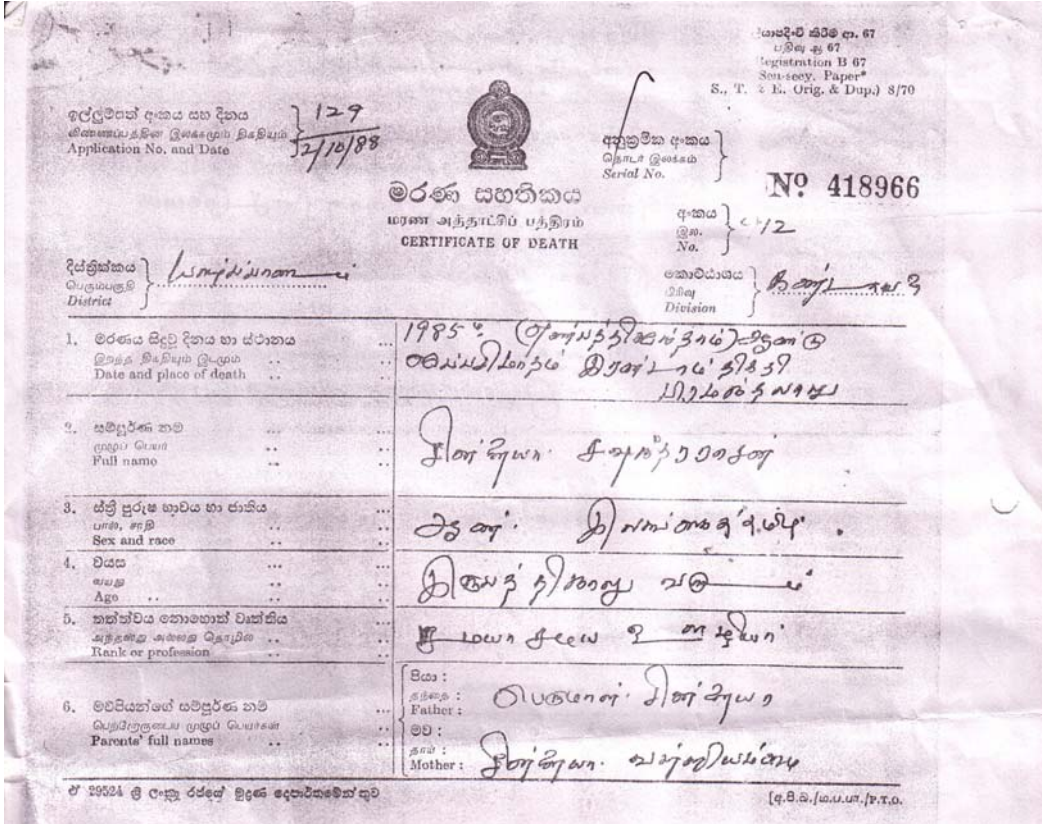 ලියාපදිංචි කිරීම් ආ. 67
பதிவு ஆ 67
Registration B 67
Sen-secy. Paper*
S., T. & E. Orig. & Dup.) 8/70
ඉල්ලුම්පත් අංකය සහ දිනය
விண்ணப்பத்தின் இலக்கமும் திகதியும்
Application No. and Date
129
2/10/88
අනුක්‍රමික අංකය
தொடர் இலக்கம்
Serial No.
Nº 418966
මරණ සහතිකය
மரண அத்தாட்சிப் பத்திரம்
CERTIFICATE OF DEATH
අංකය
இல.
No.
12
දිස්ත්‍රික්කය
பெரும்பகுதி
District
யாழ்ப்பாணம்
කොට්ඨාශය
பிரிவு
Division
1. මරණය සිදුවූ දිනය හා ස්ථානය
இறந்த திகதியும் இடமும்
Date and place of death
1985 (எண்பத்திஐந்தாம்) ஆண்டு
ஐப்பசிமாதம் இரண்டாம் திகதி
2. සම්පූර්ණ නම
முழுப் பெயர்
Full name
சின்னையா
3. ස්ත්‍රී පුරුෂ භාවය හා ජාතිය
பால், சாதி
Sex and race
ஆண். இலங்கைத்தமிழ்.
4. වයස
வயது
Age
இருபத்திநாலு வருடம்
5. තත්ත්වය නොහොත් වෘත්තිය
அந்தஸ்து அல்லது தொழில்
Rank or profession
ஊழியர்
6. මව්පියන්ගේ සම්පූර්ණ නම්
பெற்றோருடைய முழுப் பெயர்கள்
Parents' full names
පියා :
தந்தை :
Father :
பெருமாள் சின்னையா
මව :
தாய் :
Mother :
சின்னையா வள்ளியம்மை
ඒ 29524 ශ්‍රී ලංකා රජයේ මුද්‍රණ දෙපාර්තමේන්තුව
[අ.පි.බ./ம.ப.பா./P.T.O.